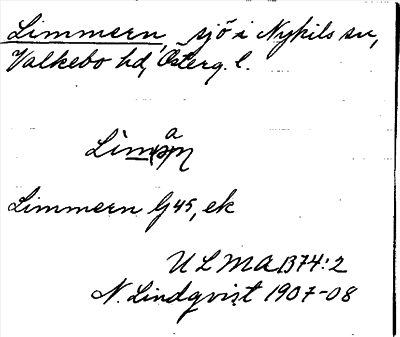 Limmern, sjö i Nykils sn,
Valkebo hd, Österg. l.
a
Limmern G45, ek
ULMA 1374:2
N. Lindqvist 1907-08